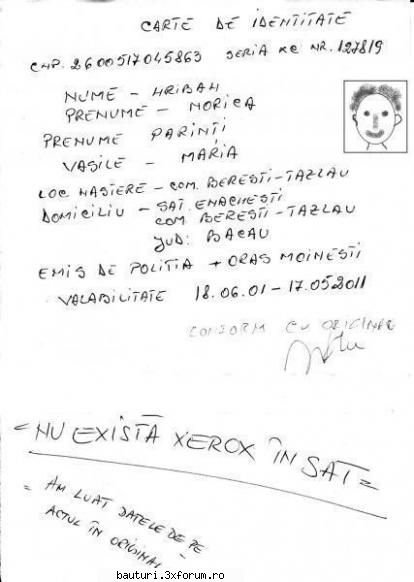 CARTE DE IDENTITATE
CNP. 2600517045863 SERIA XC NR. 127819
NUME - HRIBAN
PRENUME - NORICA
PRENUME PARINȚI
VASILE - MARIA
LOC NASTERE - COM. BERESTI-TAZLAU
DOMICILIU - SAT. ENACHESTI
COM BERESTI-TAZLAU
JUD: BACAU
EMIS DE POLITIA + ORAS MOINESTI
VALABILITATE 18.06.01 - 17.05.2011
CONFORM CU ORIGINAL
= NU EXISTĂ XEROX ÎN SAT =
= AM LUAT DATELE DE PE
ACTUL ÎN ORIGINAL
bauturi.3xforum.ro